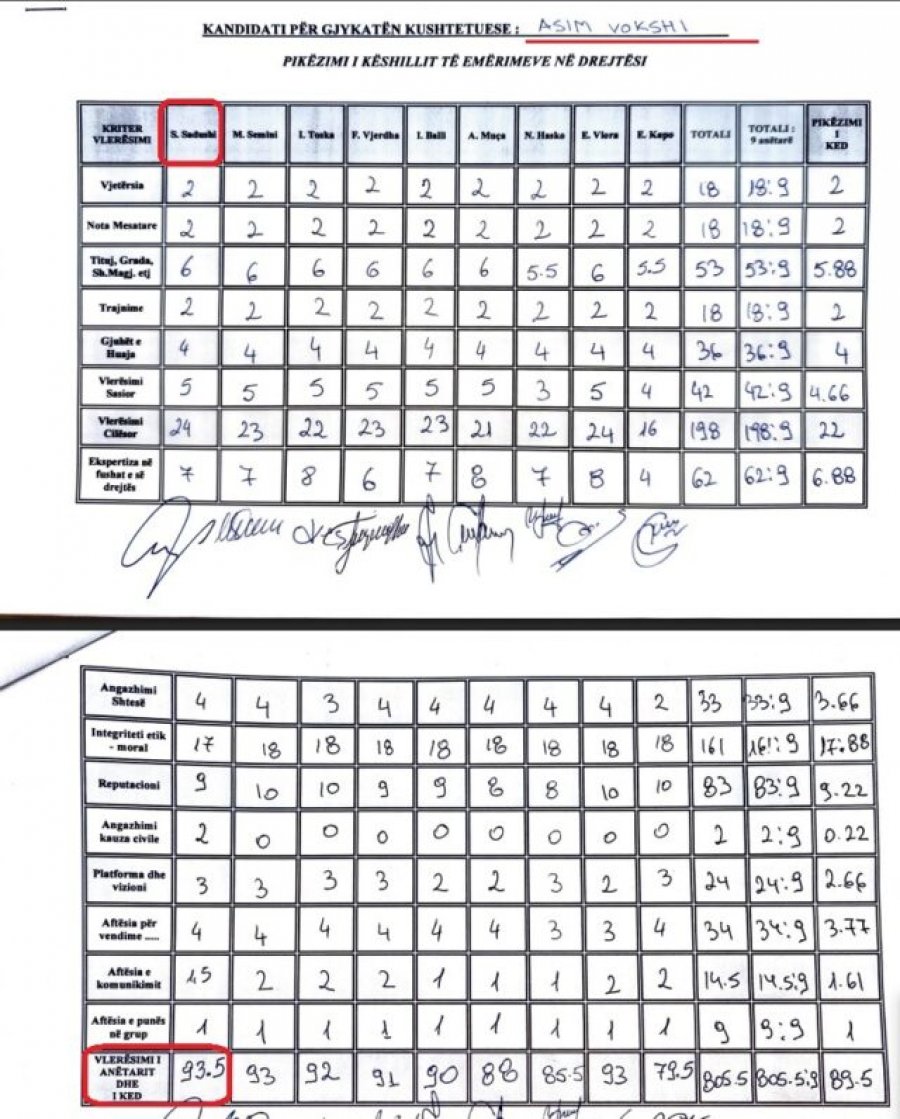 KANDIDATI PËR GJYKATËN KUSHTETUESE : ASIM VOKSHI
PIKËZIMI I KËSHILLIT TË EMËRIMEVE NË DREJTËSI
KRITER VLERËSIMI S. Sadushi M. Semini I. Toska F. Vjerdha I. Balli A. Muça N. Hasko E. Vlora E. Kapo TOTALI TOTALI : 9 anëtarë PIKËZIMI I KED
Vjetërsia 2 2 2 2 2 2 2 2 2 18 18:9 2
Nota Mesatare 2 2 2 2 2 2 2 2 2 18 18:9 2
Tituj, Grada, Sh.Magj. etj 6 6 6 6 6 6 5.5 6 5.5 53 53:9 5.88
Trajnime 2 2 2 2 2 2 2 2 2 18 18:9 2
Gjuhët e Huaja 4 4 4 4 4 4 4 4 4 36 36:9 4
Vlerësimi Sasior 5 5 5 5 5 5 3 5 4 42 42:9 4.66
Vlerësimi Cilësor 24 23 22 23 23 21 22 24 16 198 198:9 22
Ekspertiza në fushat e së drejtës 7 7 8 6 7 8 7 8 4 62 62:9 6.88
Angazhimi Shtesë 4 4 3 4 4 4 4 4 2 33 33:9 3.66
Integriteti etik - moral 17 18 18 18 18 18 18 18 18 161 161:9 17.88
Reputacioni 9 10 10 9 9 8 8 10 10 83 83:9 9.22
Angazhimi kauza civile 2 0 0 0 0 0 0 0 0 2 2:9 0.22
Platforma dhe vizioni 3 3 3 3 2 2 3 2 3 24 24:9 2.66
Aftësia për vendime ..... 4 4 4 4 4 4 3 3 4 34 34:9 3.77
Aftësia e komunikimit 1,5 2 2 2 1 1 1 2 2 14.5 14.5:9 1.61
Aftësia e punës në grup 1 1 1 1 1 1 1 1 1 9 9:9 1
VLERËSIMI I ANËTARIT DHE I KED 93.5 93 92 91 90 88 85.5 93 79.5 805.5 805.5:9 89.5